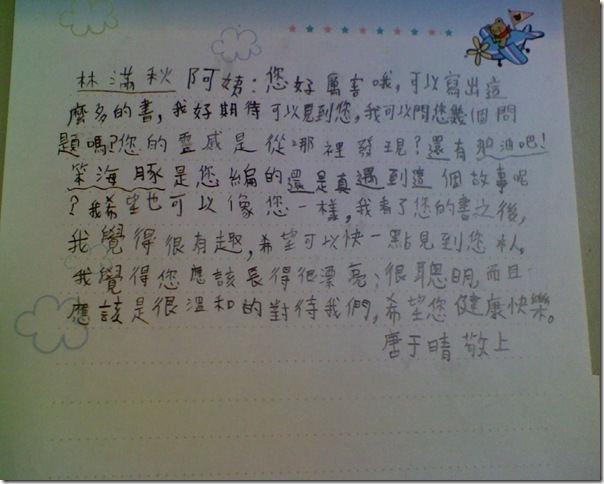 林滿秋阿姨:您好厲害哦,可以寫出這
麼多的書,我好期待可以見到您,我可以問您幾個問
題嗎?您的靈感是從哪裡發現?還有加油吧!
笨海豚是您編的還是真遇到這個故事呢
?我希望也可以像您一樣,我看了您的書之後,
我覺得很有趣,希望可以快一點見到您本人,
我覺得您應該長得很漂亮;很聰明,而且
應該是很溫和的對待我們,希望您健康快樂。
唐于晴 敬上